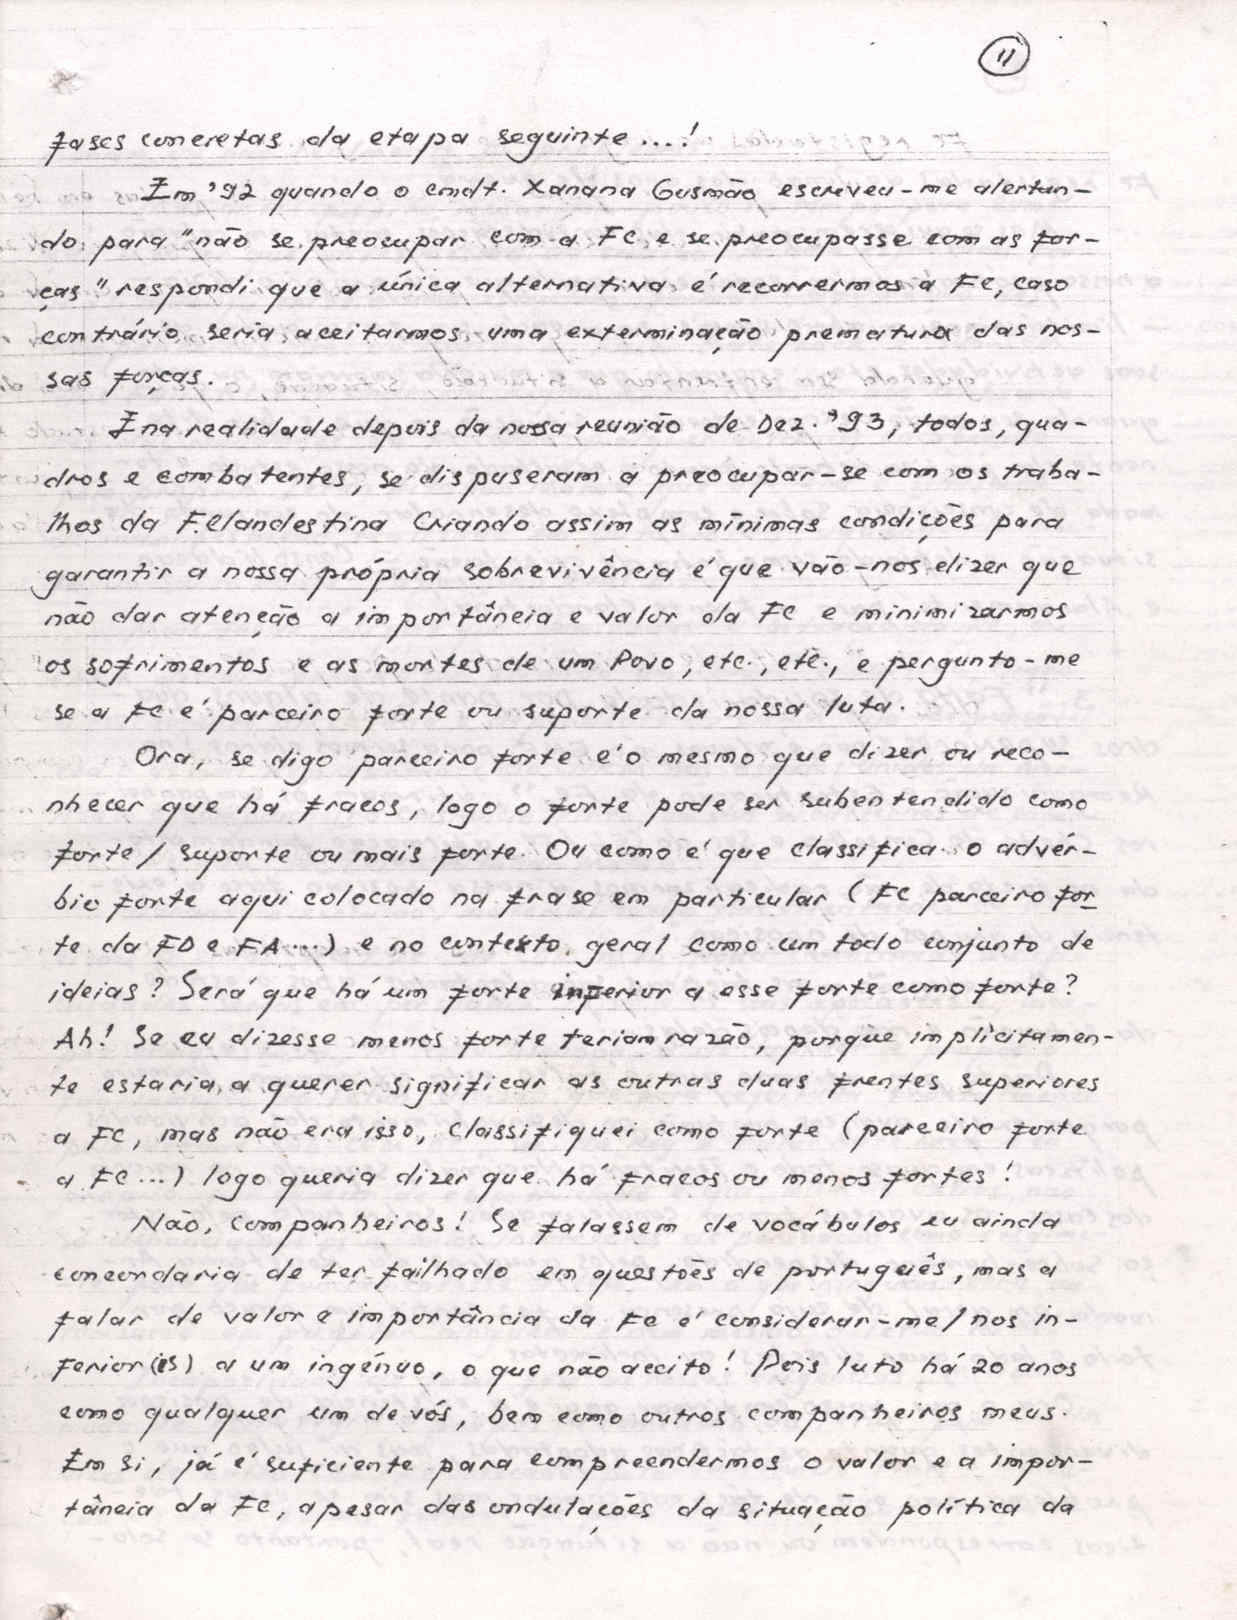 11
fases concretas da etapa seguinte ...!
Em '92 quando o cmdt. Xanana Gusmão escreveu-me alertan-
do para "não se preocupar com a FC e se preocupasse com as for-
ças" respondi que a única alternativa é recorrermos à FC, caso
contrário seria aceitarmos uma exterminação prematura das nos-
sas forças.
E na realidade depois da nossa reunião de Dez. '93, todos, qua-
dros e combatentes, se dispuseram a preocupar-se com os traba-
lhos da F.Clandestina Criando assim as mínimas condições para
garantir a nossa própria sobrevivência é que vão-nos dizer que
não dar atenção a importância e valor da FC e minimizarmos
os sofrimentos e as mortes de um Povo, etc., etc., e pergunto-me
se a FC é parceiro forte ou suporte da nossa luta.
Ora, se digo parceiro forte é o mesmo que dizer ou reco-
nhecer que há fracos, logo o forte pode ser subentendido como
forte/suporte ou mais forte. Ou como é que classifica o advér-
bio forte aqui colocado na frase em particular (FC parceiro for
te da FD e FA...) e no contexto geral como um todo conjunto de
ideias? Será que há um forte inferior a esse forte como forte?
Ah! Se eu dizesse menos forte teriam razão, porque implìcitamen-
te estaria a querer significar as outras duas frentes superiores
a FC, mas não era isso, classifiquei como forte (parceiro forte
a FC ...) logo queria dizer que há fracos ou menos fortes!
Não, companheiros! Se falassem de vocábulos eu ainda
concordaria de ter failhado em questões de português, mas a
falar de valor e importância da FC é considerar-me/nos in-
ferior(es) a um ingénuo, o que não aceito! Pois luto há 20 anos
como qualquer um de vós, bem como outros companheiros meus.
Em si, já é suficiente para compreendermos o valor e a impor-
tância da FC, apesar das ondulações da situação política da